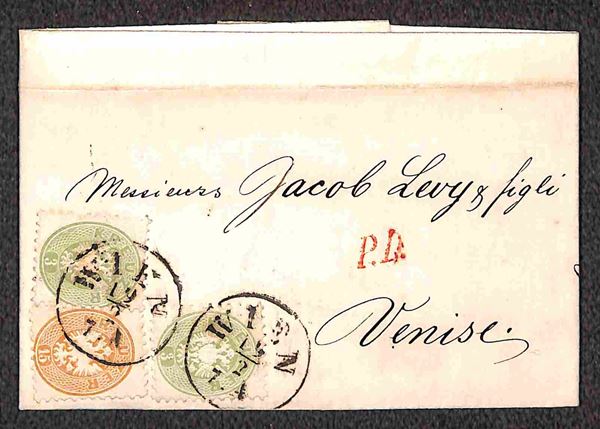 Messieurs Jacob Levy & figli
P.D.
Venise.
WIEN
WIEN
3
15
3